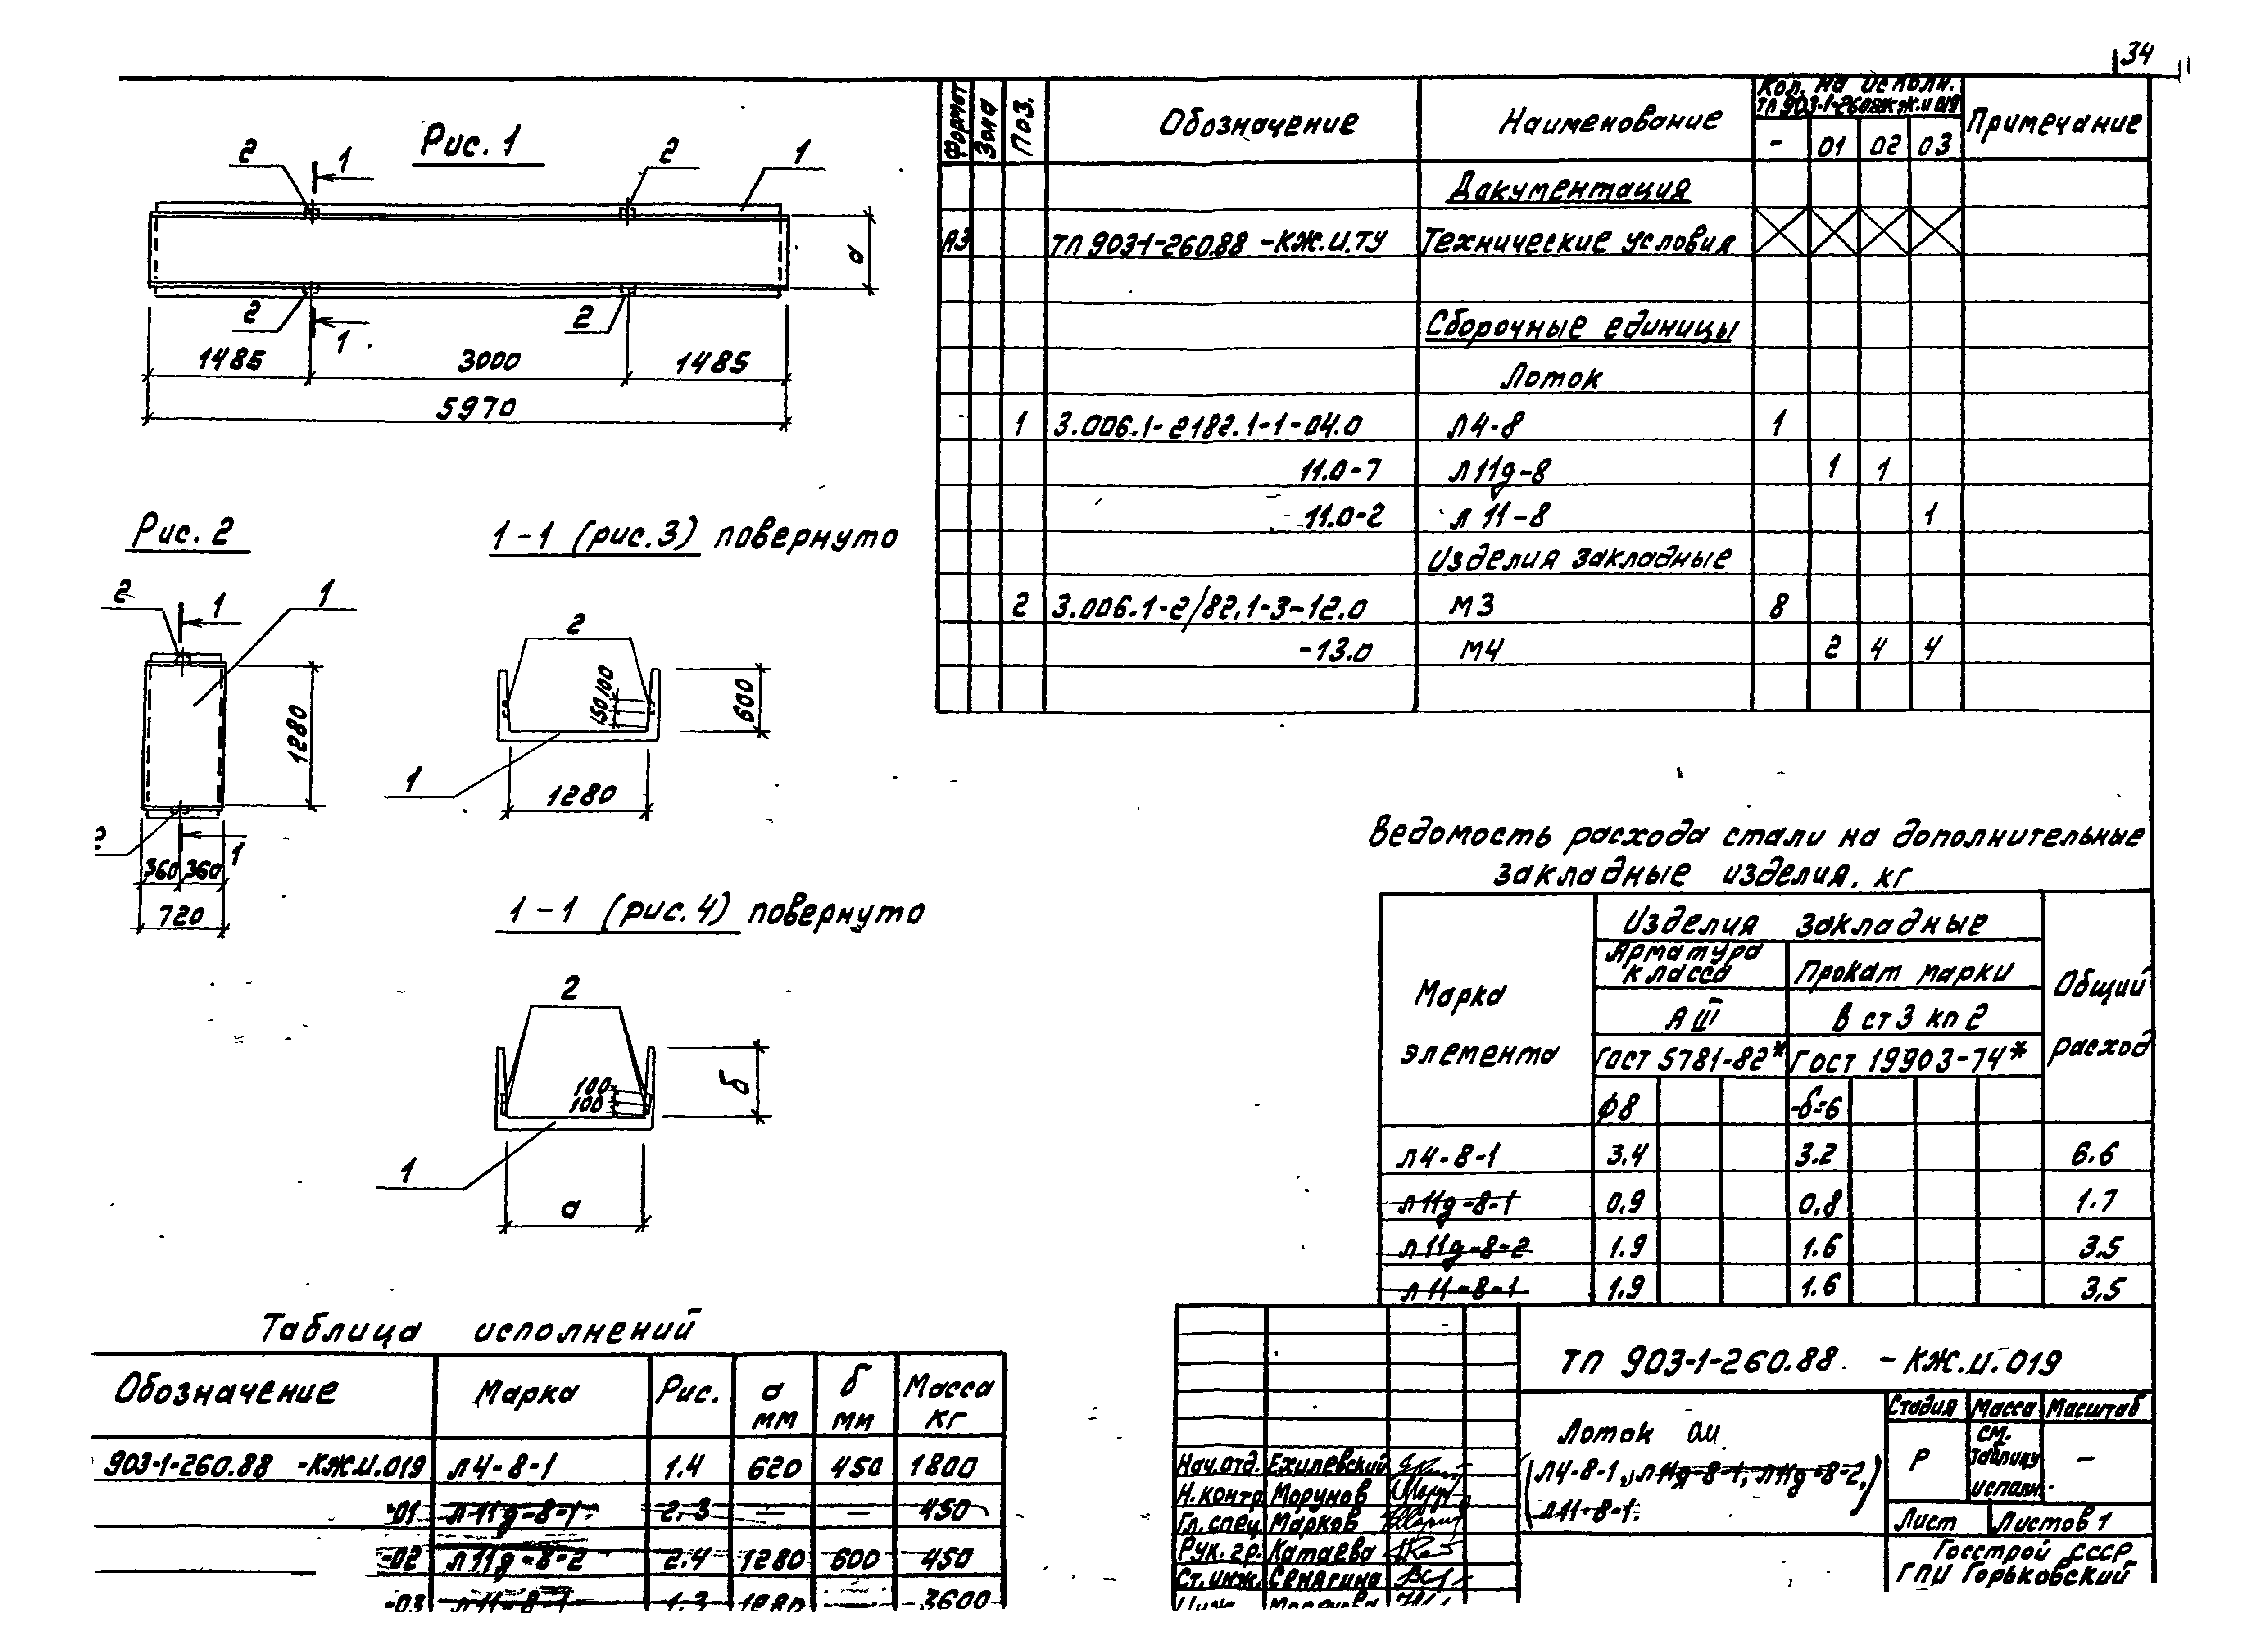 34
Рис. 1
2 1 2 1
а
2 1 2
1485 3000 1485
5970
Рис. 2
2 1 1
1280
2 1
360 360
720
1-1 (рис.3) повернуто
2
150 100
600
1
1280
1-1 (рис.4) повернуто
2
100
100
б
1
а
Формат Зона Поз. Обозначение Наименование Кол. на исполн. Примечание
ТП 903-1-260.88 КЖ.И 019
- 01 02 03
Документация
А3 ТП 903-1-260.88 -КЖ.И.ТУ Технические условия
Сборочные единицы
Лоток
1 3.006.1-2182.1-1-04.0 Л4-8 1
11.0-7 Л11д-8 1 1
-11.0-2 Л 11-8 1
Изделия закладные
2 3.006.1-2/82.1-3-12.0 М3 8
-13.0 М4 2 4 4
Ведомость расхода стали на дополнительные
закладные изделия, кг
Марка элемента Изделия закладные Общий расход
Арматура класса Прокат марки
А III В ст 3 кп 2
ГОСТ 5781-82* ГОСТ 19903-74*
ф8 -δ=6
Л4-8-1 3.4 3.2 6.6
Л11д-8-1 0.9 0.8 1.7
Л11д-8-2 1.9 1.6 3.5
Л11-8-1 1.9 1.6 3,5
Таблица исполнений
Обозначение Марка Рис. а мм б мм Масса кг
903-1-260.88 -КЖ.И.019 Л4-8-1 1.4 620 450 1800
-01 Л11д-8-1 2.3 — — 450
-02 Л11д-8-2 2.4 1280 600 450
-03 Л11-8-1 1.3 1280 — 3600
ТП 903-1-260.88 -КЖ.И.019
Лоток
(Л4-8-1, Л11д-8-1, Л11д-8-2,
Л11-8-1)
Стадия Масса Масштаб
Р см. таблицу исполн. —
Лист Листов 1
Госстрой СССР
ГПИ Горьковский
Нач.отд. Ехилевский
Н.контр Морунов
Гл.спец Марков
Рук. гр. Катаева
Ст.инж. Сенягина
Инж.